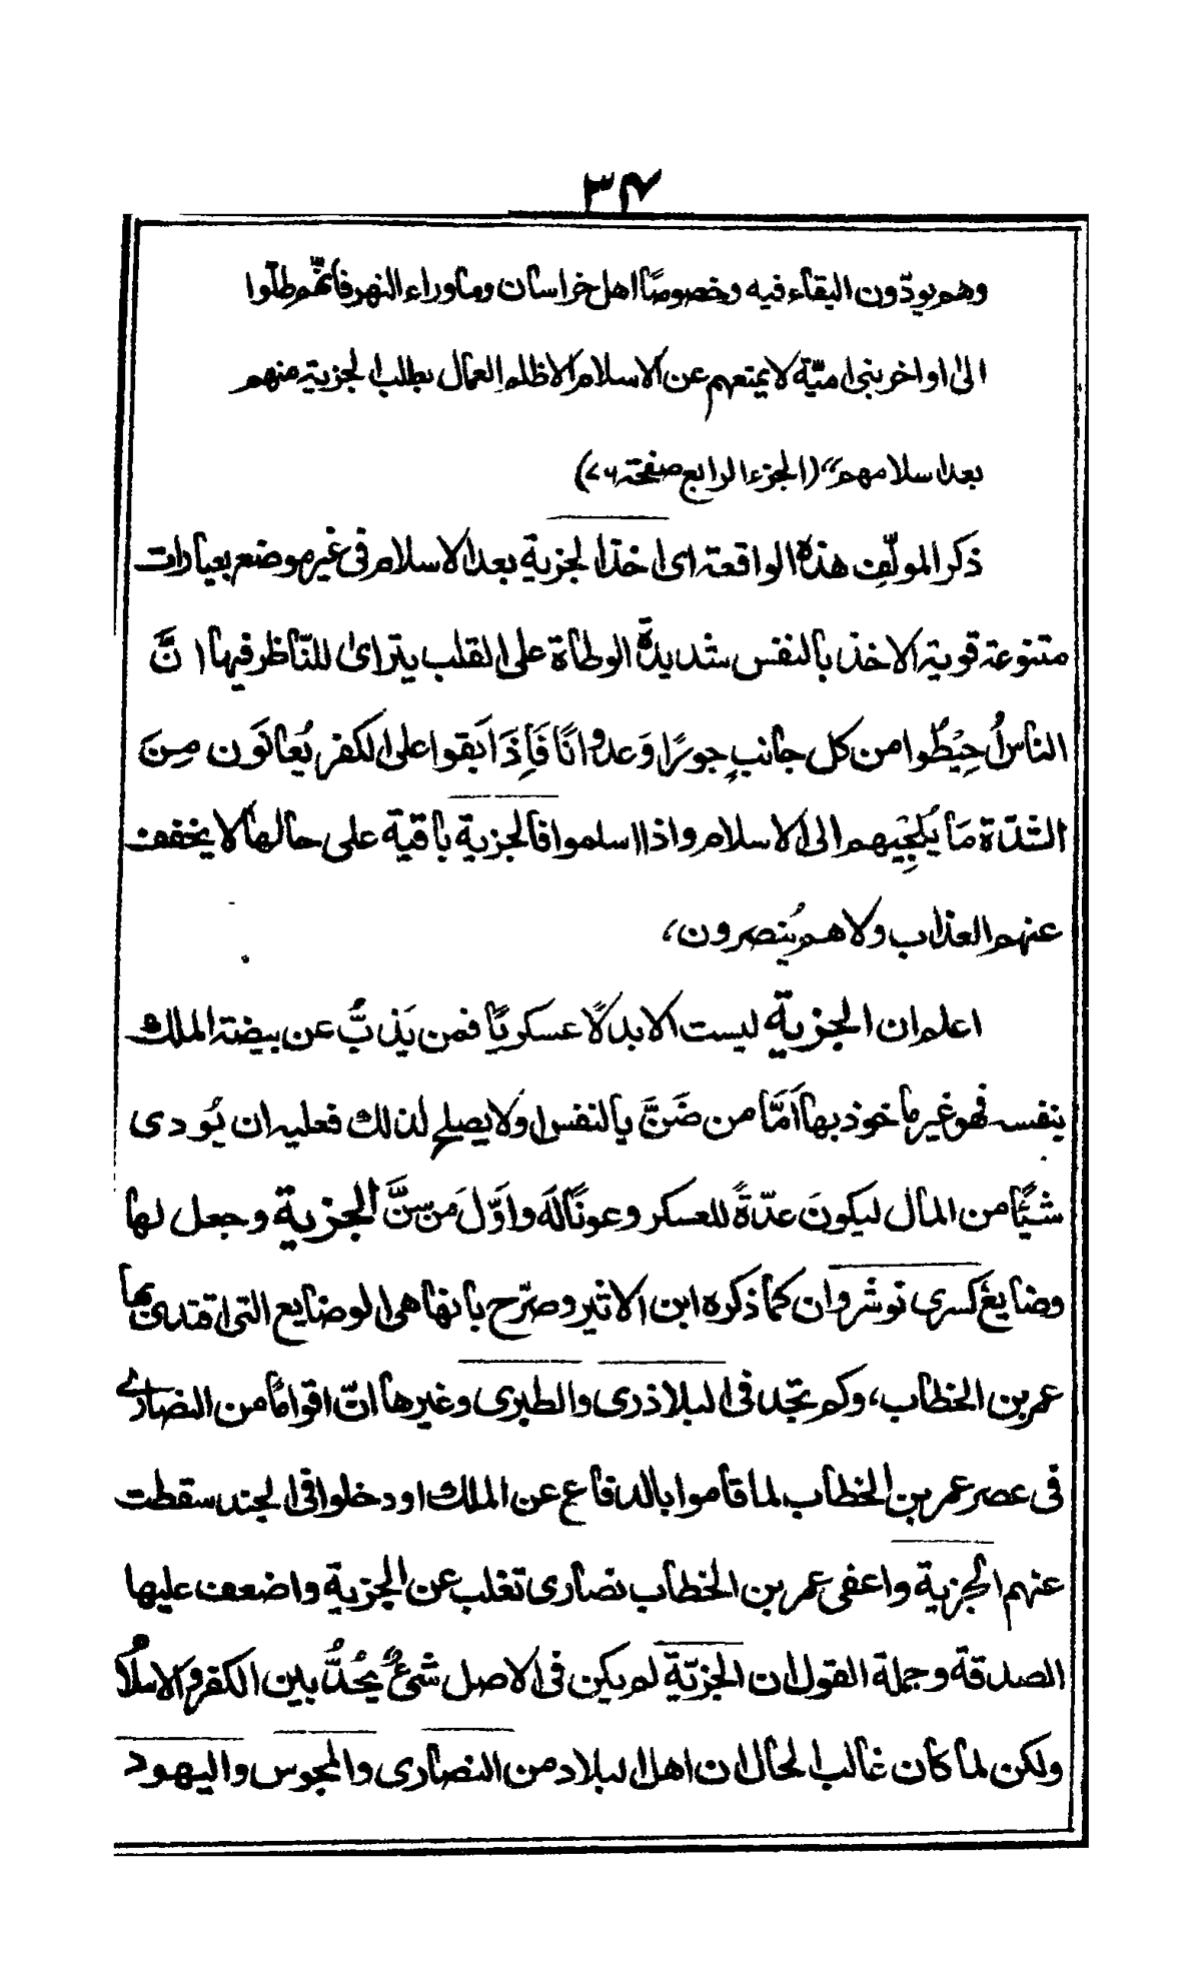 ٣٤
وهم يودّون البقاء فيه وخصوصًا اهل خراسان وماوراء النهر فانّهم ظلّوا
الى اواخر بنى اميّة لا يمنعهم عن الاسلام الا ظلم العمال بطلب الجزية منهم
بعد اسلامهم“ (الجزء الرابع صفحة ٧٦)
ذكر المولّف هذه الواقعة اى اخذ الجزية بعد الاسلام فى غير موضع بعبارات
متنوعة قوية الاخذ بالنفس شديدة الوطاة على القلب يتراى للنّاظر فيها انَّ
الناس اُحِيْطُوا من كل جانبٍ جورًا وَعدوانًا فَاِذَا بَقوا على الكفر يُعانَون مِنَ
الشدّة مَا يُلجِيهم الى الاسلام واذا اسلموا فالجزية باقية على حالها لا يخفف
عنهم العذاب ولا هم يُنصرون،
اعلم ان الجزية ليست الا بدلًا عسكريًا فمن يَذبُّ عن بيضة الملك
بنفسه فهو غير ماخوذ بها اَمَّا من ضَنَّ بالنفس ولا يصلح لذلك فعليه ان يُودى
شيًا من المال ليكونَ عدّةً للعسكر وعونًا لَه واوّلَ من سنَّ الجزية وجعل لها
وضايعَ كسرى نوشروان كما ذكره ابن الاثير وصرّح بانها هى الوضايع التى اقتدى بها
عمر بن الخطاب، وكم تجد فى البلاذرى والطبرى وغيرها انّ اقوامًا من النصارى
فى عصر عمر بن الخطاب لما قاموا بالدفاع عن الملك او دخلوا فى الجند سقطت
عنهم الجزية واعفى عمر بن الخطاب نصارى تغلب عن الجزية واضعف عليها
الصدقة وجملة القول ان الجزيّة لم يكن فى الاصل شيءٌ يُحدُّ بين الكفر والاسلام
ولكن لما كان غالب الحال ان اهل البلاد من النصارى والمجوس واليهود